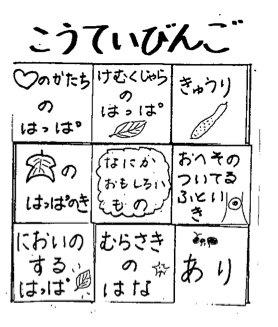 こうていびんご
♡のかたち
の
はっぱ
けむくじゃら
の
はっぱ
きゅうり
の
はっぱのき
なにか
おもしろい
もの
おへその
ついてる
ふとい
き
においの
する
はっぱ
むらさき
の
はな
あり